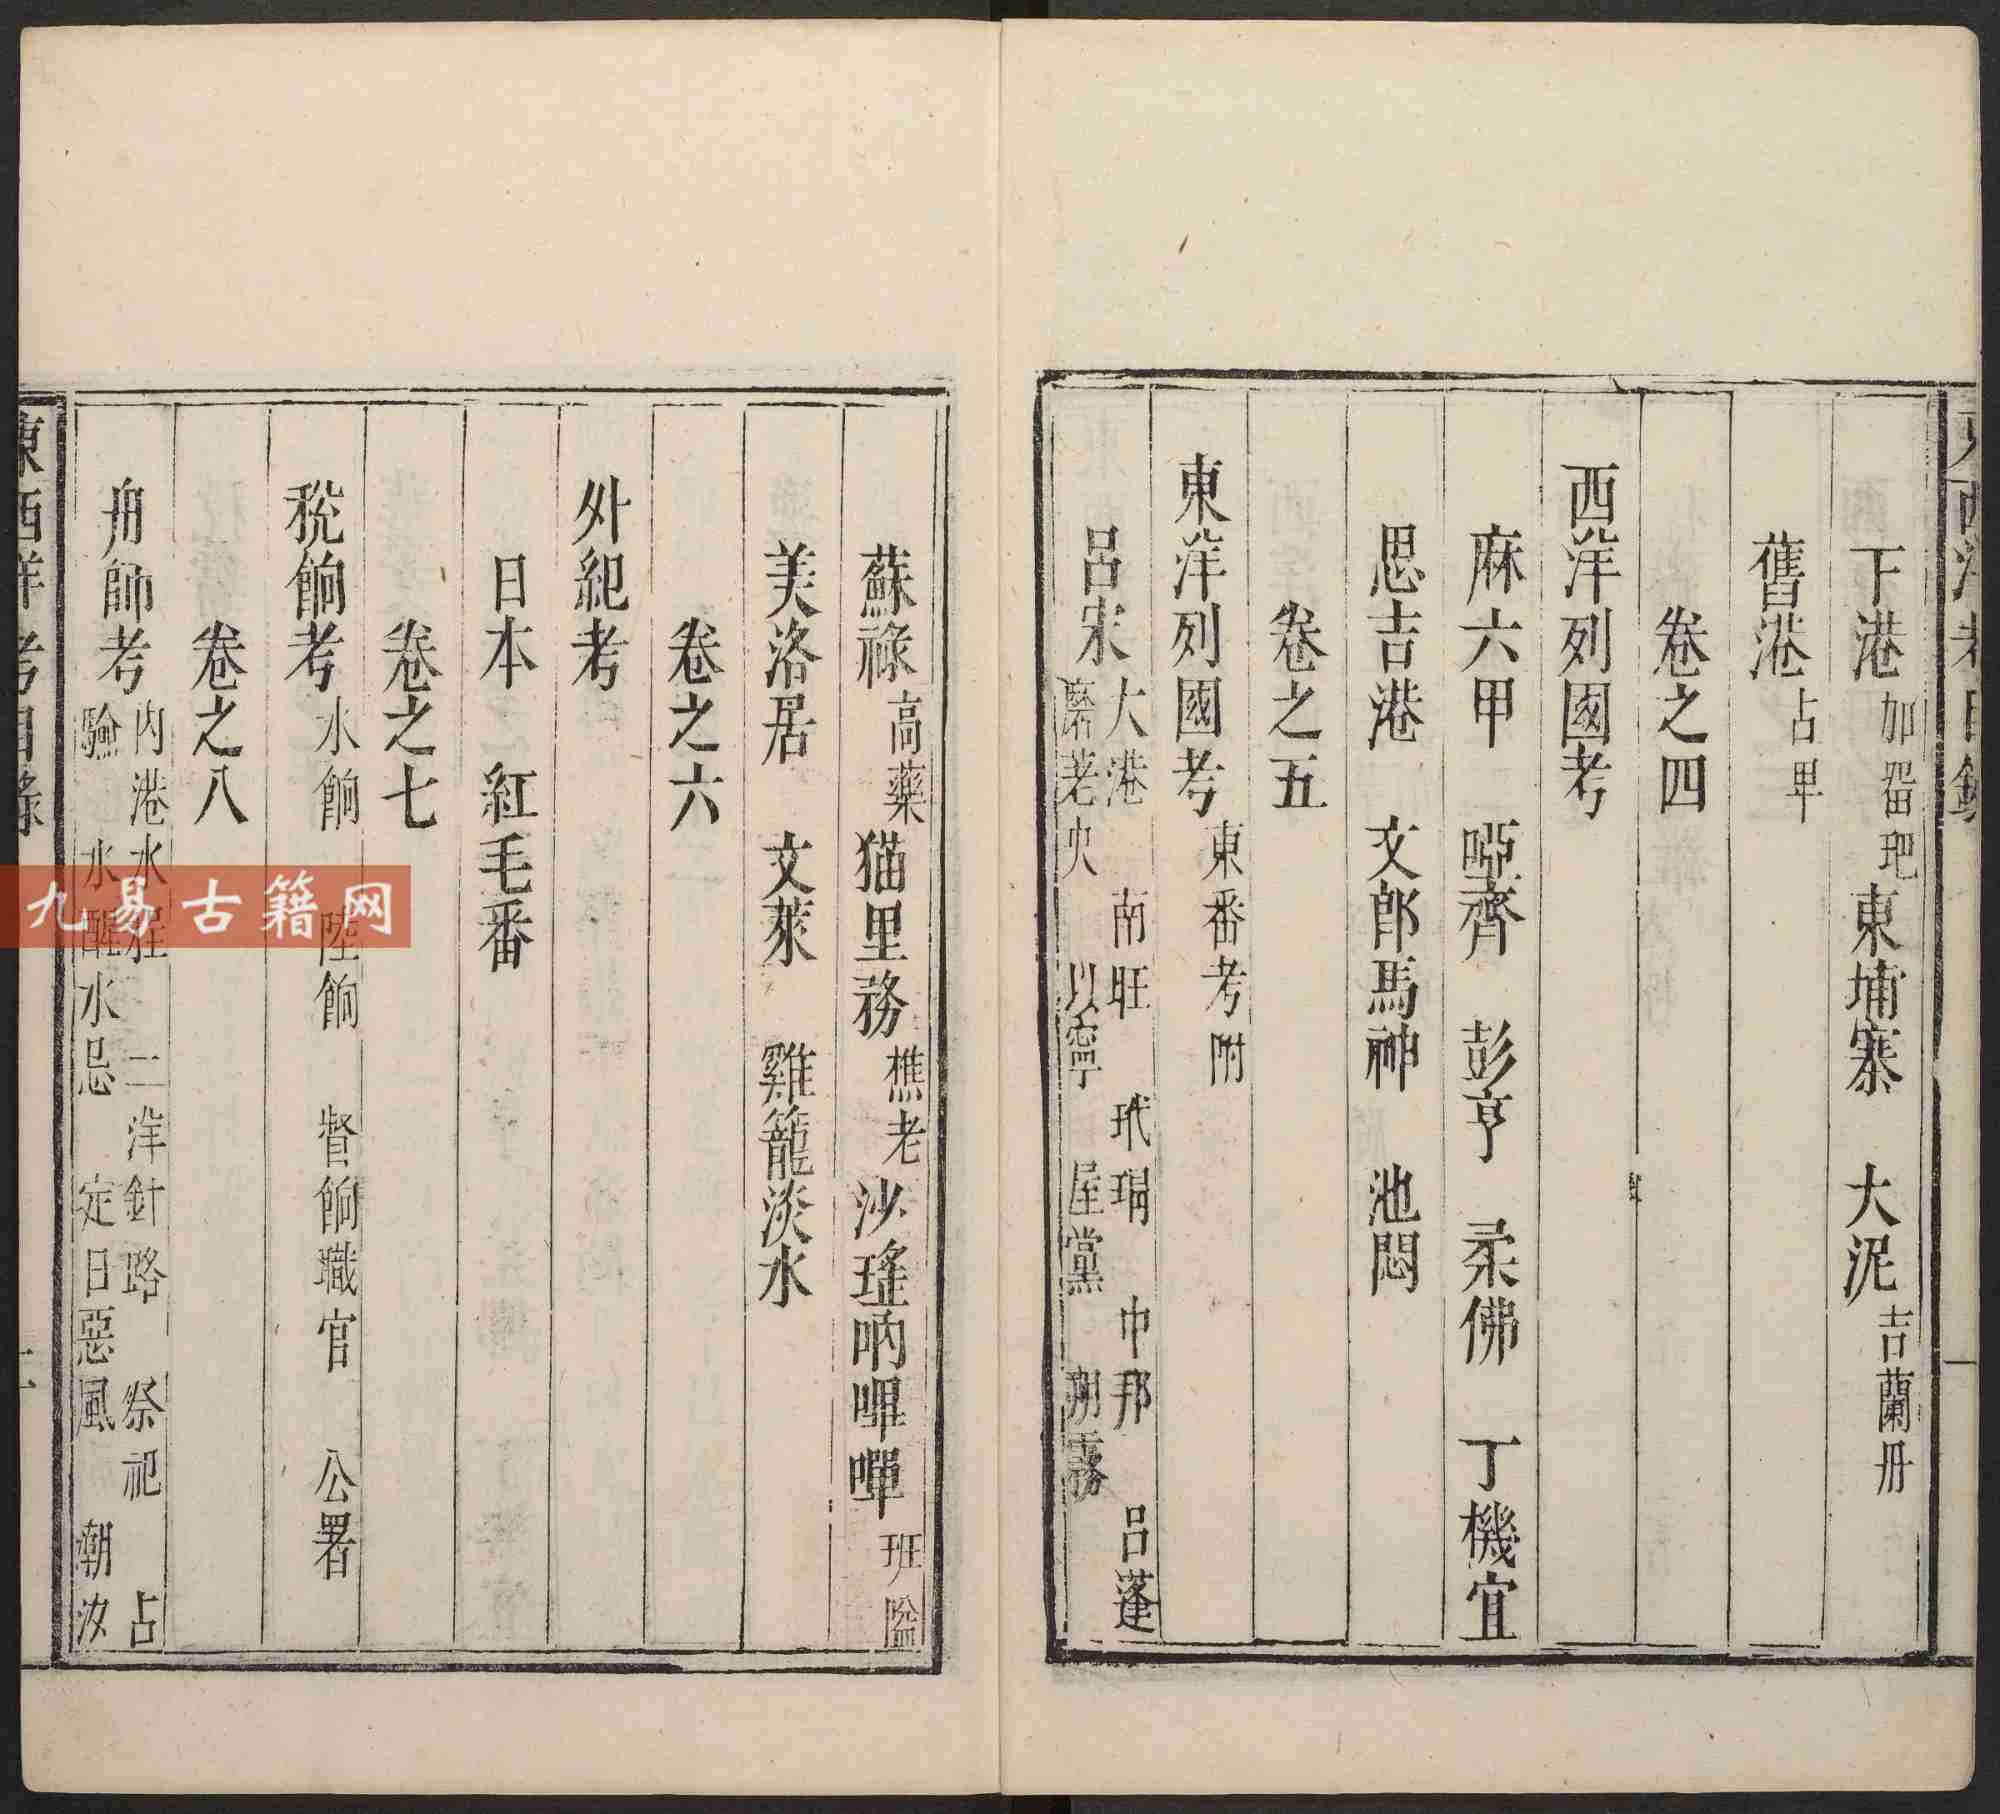 下港加畱𢺞東埔寨　大泥吉蘭丹
舊港占畢
卷之四
西洋列國考
麻六甲　啞齊　彭亨　柔佛　丁機宜
思吉港　文郎馬神　池悶
卷之五
東洋列國考東番考附
呂宋大港　南旺　玳瑁　中邦　呂蓬
磨荖央　以寧　屋黨　朔霧
東西洋考目錄
蘇祿高藥猫里務樵老沙瑤吶嗶嘽班隘
美洛居　文萊　雞籠淡水
卷之六
外紀考
日本　紅毛番
卷之七
稅餉考水餉　陸餉　督餉職官　公署
卷之八
舟師考內港水程　二洋針路　祭祀　占
驗　水醒水忌　定日惡風　潮汐
東西洋考目錄
九易古籍网